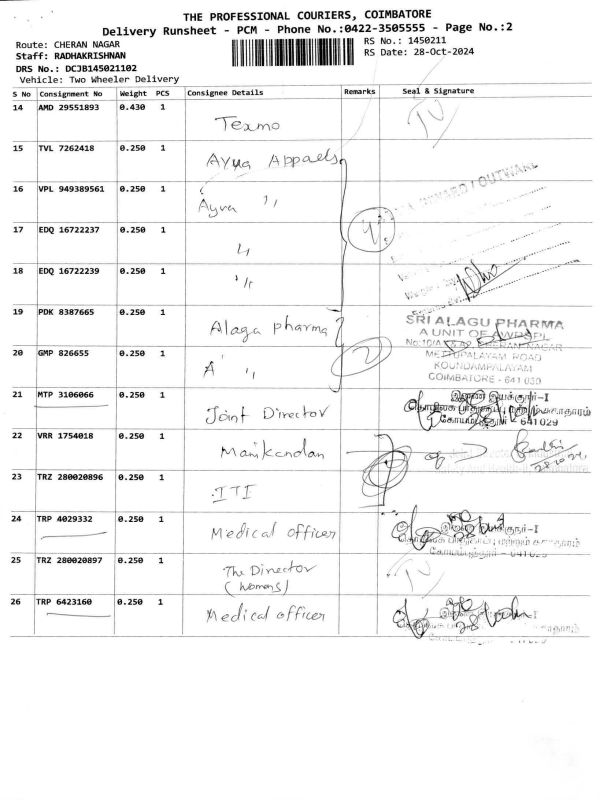 THE PROFESSIONAL COURIERS, COIMBATORE
Delivery Runsheet - PCM - Phone No.:0422-3505555 - Page No.:2
Route: CHERAN NAGAR
RS No.: 1450211
Staff: RADHAKRISHNAN
RS Date: 28-Oct-2024
DRS No.: DCJB145021102
Vehicle: Two Wheeler Delivery
S No Consignment No Weight PCS Consignee Details Remarks Seal & Signature
14 AMD 29551893 0.430 1
Texmo
15 TVL 7262418 0.250 1
Ayua Appaels
16 VPL 949389561 0.250 1
Ayva "
INWARD / OUTWARD
17 EDQ 16722237 0.250 1
"
4
18 EDQ 16722239 0.250 1
"
19 PDK 8387665 0.250 1
Alaga pharma
SRI ALAGU PHARMA
A UNIT OF
CHERAN NAGAR
20 GMP 826655 0.250 1
A "
2
METTUPALAYAM ROAD
KOUNDAMPALAYAM
COIMBATORE - 641 030
21 MTP 3106066 0.250 1
Joint Director
இணை இயக்குநர்-I
641 029
22 VRR 1754018 0.250 1
Manikandan
28.10.24
23 TRZ 280020896 0.250 1
ITI
24 TRP 4029332 0.250 1
Medical officer
641 029
25 TRZ 280020897 0.250 1
The Director
(womens)
26 TRP 6423160 0.250 1
Medical officer